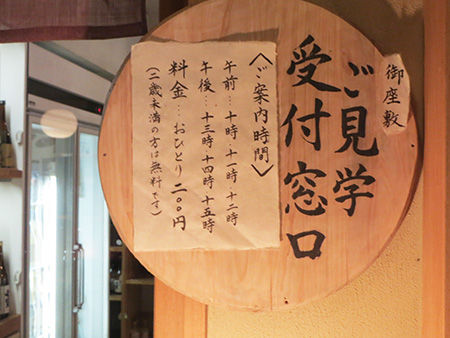 御座敷
ご見学
受付窓口
〈ご案内時間〉
午前…十時・十一時・十二時
午後…十三時・十四時・十五時
料金…おひとり二〇〇円
(二歳未満の方は無料です)